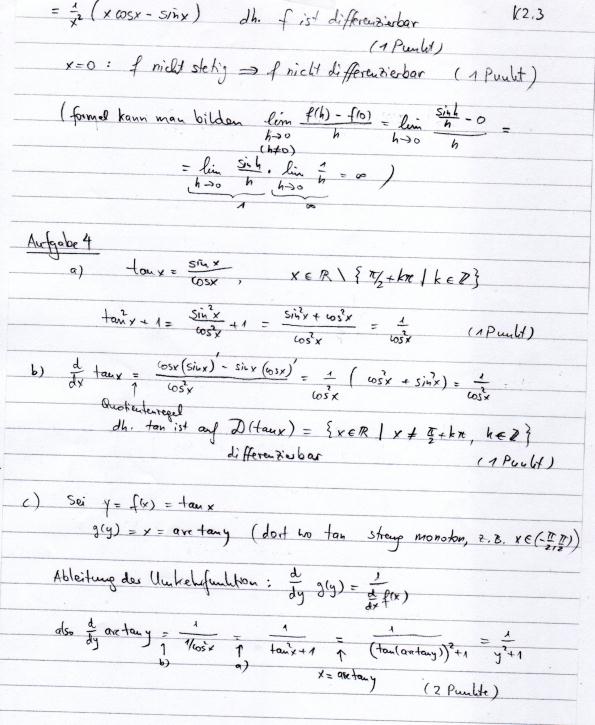 = 1/x² (x cosx - sinx)   dh. f ist differenzierbar   K2.3
(1 Punkt)
x=0 : f nicht stetig ⇒ f nicht differenzierbar (1 Punkt)
(formal kann man bilden lim_{h→0 (h≠0)} (f(h) - f(0))/h = lim_{h→0} (sinh/h - 0)/h =
= lim_{h→0} sinh/h · lim_{h→0} 1/h = ∞ )
1   ∞
Aufgabe 4
a) tanx = sinx/cosx ,   x ∈ ℝ \ { π/2 + kπ | k ∈ ℤ}
tan²x + 1 = sin²x/cos²x + 1 = (sin²x + cos²x)/cos²x = 1/cos²x   (1 Punkt)
b) d/dx tanx = (cosx(sinx)' - sinx(cosx)')/cos²x = 1/cos²x (cos²x + sin²x) = 1/cos²x
↑
Quotientenregel
dh. tan ist auf D(tanx) = {x∈ℝ | x ≠ π/2 + kπ, k∈ℤ}
differenzierbar   (1 Punkt)
c) Sei y = f(x) = tanx
g(y) = x = arctany (dort wo tan streng monoton, z.B. x∈(-π/2, π/2))
Ableitung der Umkehrfunktion : d/dy g(y) = 1/(d/dx f(x))
also d/dy arctany = 1/(1/cos²x) = 1/(tan²x+1) = 1/((tan(arctany))²+1) = 1/(y²+1)
↑ b)   ↑ a)   ↑ x = arctany
(2 Punkte)